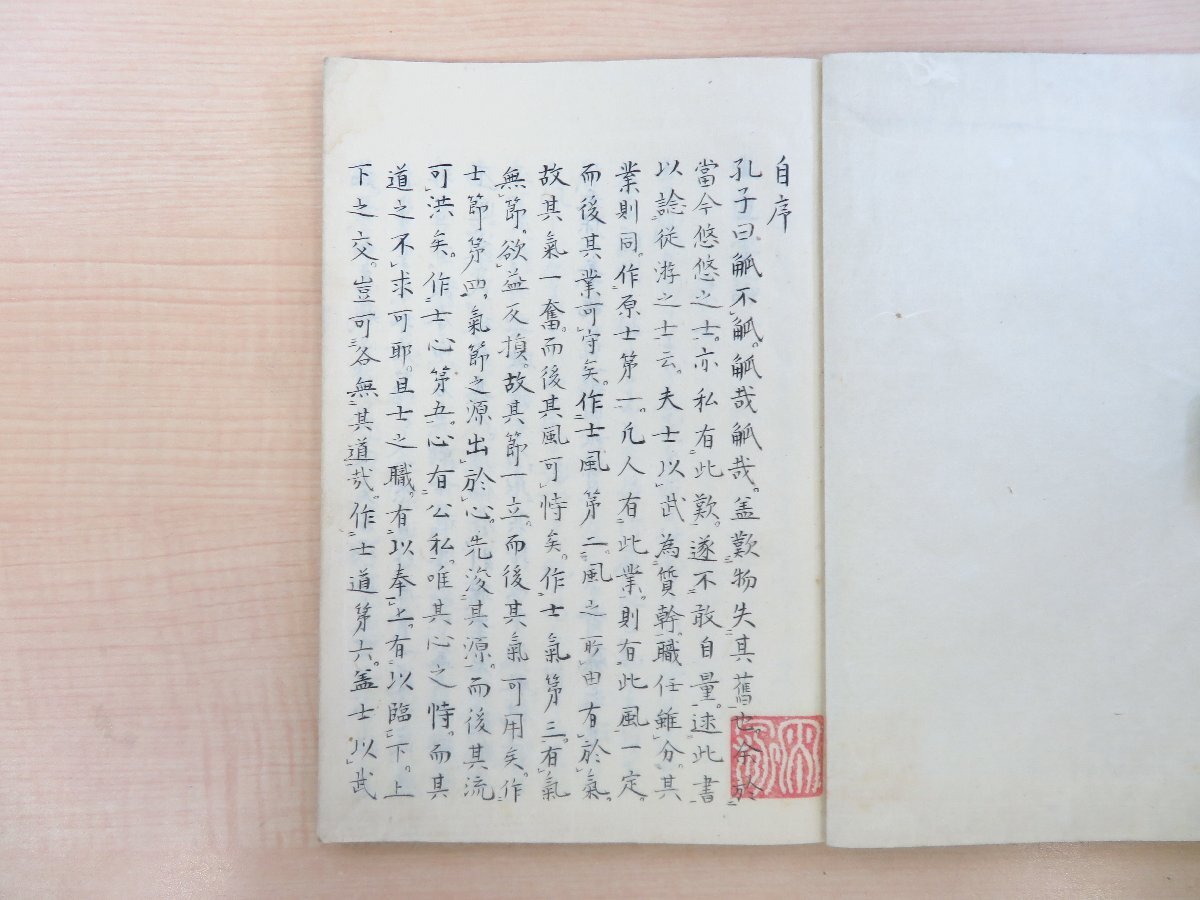 自序
孔子曰。觚不觚。觚哉觚哉。盖歎物失其舊也。余於
當今悠悠之士。亦私有此歎。遂不敢自量。述此書
以諗従游之士云。夫士以武為質幹。職任雖分。其
業則同。作原士第一。凡人有此業。則有此風一定。
而後其業可守矣。作士風第二。風之所由有於氣。
故其氣一奮。而後其風可恃矣。作士氣第三。有氣
無節。欲益反損。故其節一立。而後其氣可用矣。作
士節第四。氣節之源出於心。先浚其源。而後其流
可洪矣。作士心第五。心有公私。唯其心之恃。而其
道之不求可耶。且士之職。有以奉上。有以臨下。上
下之交。豈可各無其道哉。作士道第六。盖士以武